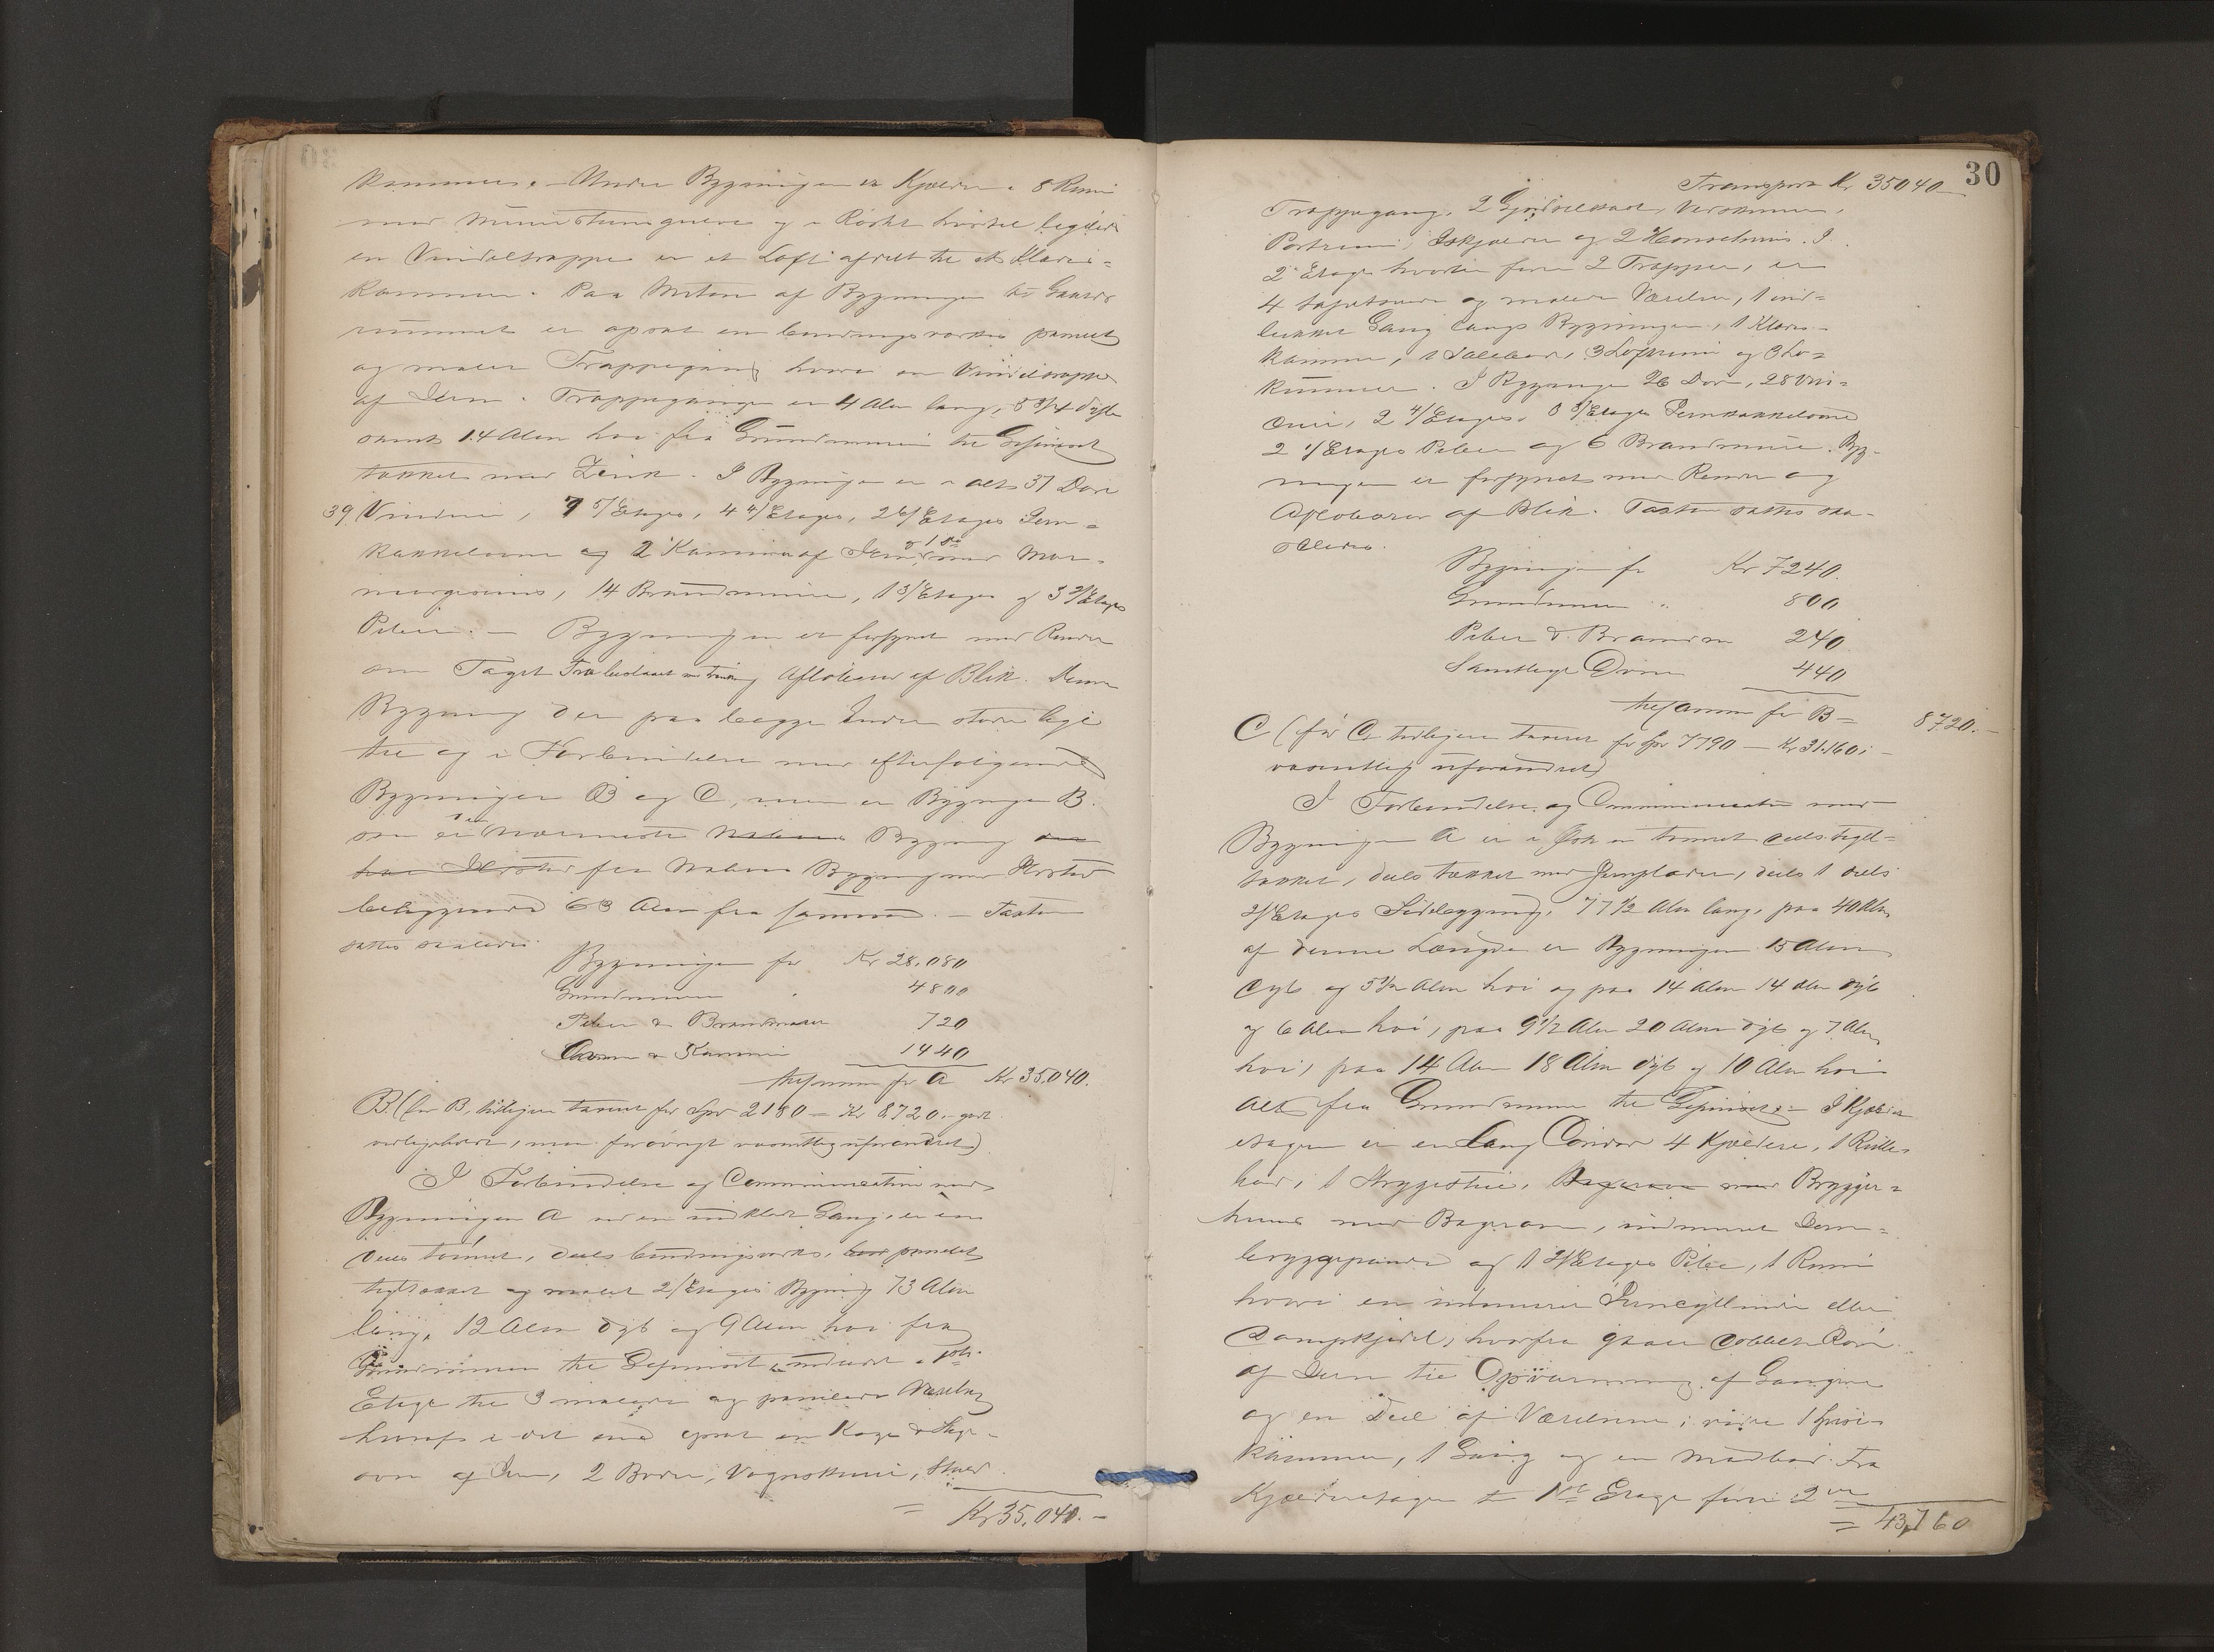 kammer. – Under Bygningen er Kjelder i 8 Rum
med Muursteensgulve og i Røsthe hvortil
en Vindeltrappe er et Loft afdelt til et Klæde=
kammer. Paa Midten af Bygningen til Gaards
rummet er opsat en bindingsværks panelet
og malet Trappegang hvori en Vindeltrappe
af Jern. Trappegangen er 4 Alen lang, 3 3/4 dyb
samt 14 Alen høi fra Grundmuren til Gesimset
tækket med Zink. I Bygningen er i alt 37 Døre
39 Vinduer, 7 5/Etages, 4 4/Etages, 2 6/Etages Jern=
kakkelovne og 2 Kaminer af Jern og 1 do med Mar=
morgesims, 14 Brandmure, 1 3/Etages og 3 2/Etages
Piber. – Bygningen er forsynet med Render
om Taget og Afløbsrør af Blik. Denne
Bygning der paa begge Ender støder lige
til og i Forbindelse med efterfølgende
Bygninger B og C, men er Bygningen B.
som er den nærmeste Bygning
fra Naboens Bygning med Ildsted
beliggende 63 Alen fra samme. – Taxten
sattes saaledes:
Bygningen for Kr 28.080
Grundmuren " 4800
Piber & Brandmure 720
Ovne & Kaminer 1440
tilsammen for A Kr 35.040.
B. (før B, tidligere taxeret for Spd 2180 = Kr 8720 – godt
vedligeholdt, men forøvrigt væsentlig uforandret)
I Forbindelse og Communication med
Bygningen A ved en indklædt Gang, er en
deels tømret, deels bindingsværks, panelet
tegltækket og malet 2/Etages Bygning 73 Alen
lang, 12 Alen dyb og 9 Alen høi fra
Grundmuren til Gesimset, indredet i 1ste
Etage til 3 malede og panelede Værelser
hvoraf i det ene opsat en Koge & Stege-
ovn af Jern, 2 Boder, Vognskuur, Stald
= Kr 35.040. –
30
Transport Kr 35040
Trappegang, 2 Vedskuur,
Portrum, Iskjelder og 2 Hønsehuus. I
2den Etage hvortil fører 2 Trapper, er
4 tapetserede og malede Værelser, 1 ind=
lukket Gang langs Bygningen, 1 Klæde-
kammer, 1 Saltebod, 3 Loftrum og 3 Lo=
kummer. I Bygningen 26 Døre, 28 Vin=
duer, 2 4/Etages, 3 3/Etages Jernkakkelovne
2 2/Etages Piber og 6 Brandmure. Byg-
ningen er forsynet med Render og
Afløbsrør af Blik. Taxten sattes saa-
ledes:
Bygningen for Kr 7240.
Grundmuren " 800
Piber & Brandm 240.
Samtlige Ovne 440
tilsammen for B = 8720. –
C (før C tidligere taxeret for Spd 7790 – Kr 31.160. –
væsentlig uforandret)
I Forbindelse og Communication med
Bygningen A er i Øst en tømret deels tegl=
tækket, deels tækket med Jernplader, deels 1 deels
2/Etages Sidebygning, 77 1/2 Alen lang, paa 40 Alen
af denne Længde er Bygningen 15 Alen
dyb og 5 1/2 Alen høi og paa 14 Alen 14 Alen dyb
og 6 Alen høi, paa 9 1/2 Alen 20 Alen dyb og 7 Alen
høi, paa 14 Alen 18 Alen dyb og 10 Alen høi
Alt fra Grundmuren til Gesimset. – I Kjelder
etagen er en lang Coridor 4 Kjeldere, 1 Rulle=
bod, 1 Strygestue, Bagerovn med Brygger=
huus med Bagerovn, indmuret Jern=
bryggepande og 1 2/Etages Pibe, 1 Rum
hvori en indmuret Jerncyllinder eller
Dampkjedel, hvorfra gaaer dobbelt Rør
af Jern til Opvarmning af Gangene
og en Deel af Værelserne; videre 1
kammer, 1 Gang og en Madbod. Fra
Kjelderetagen til 1ste Etage fører 2de
= 43,760